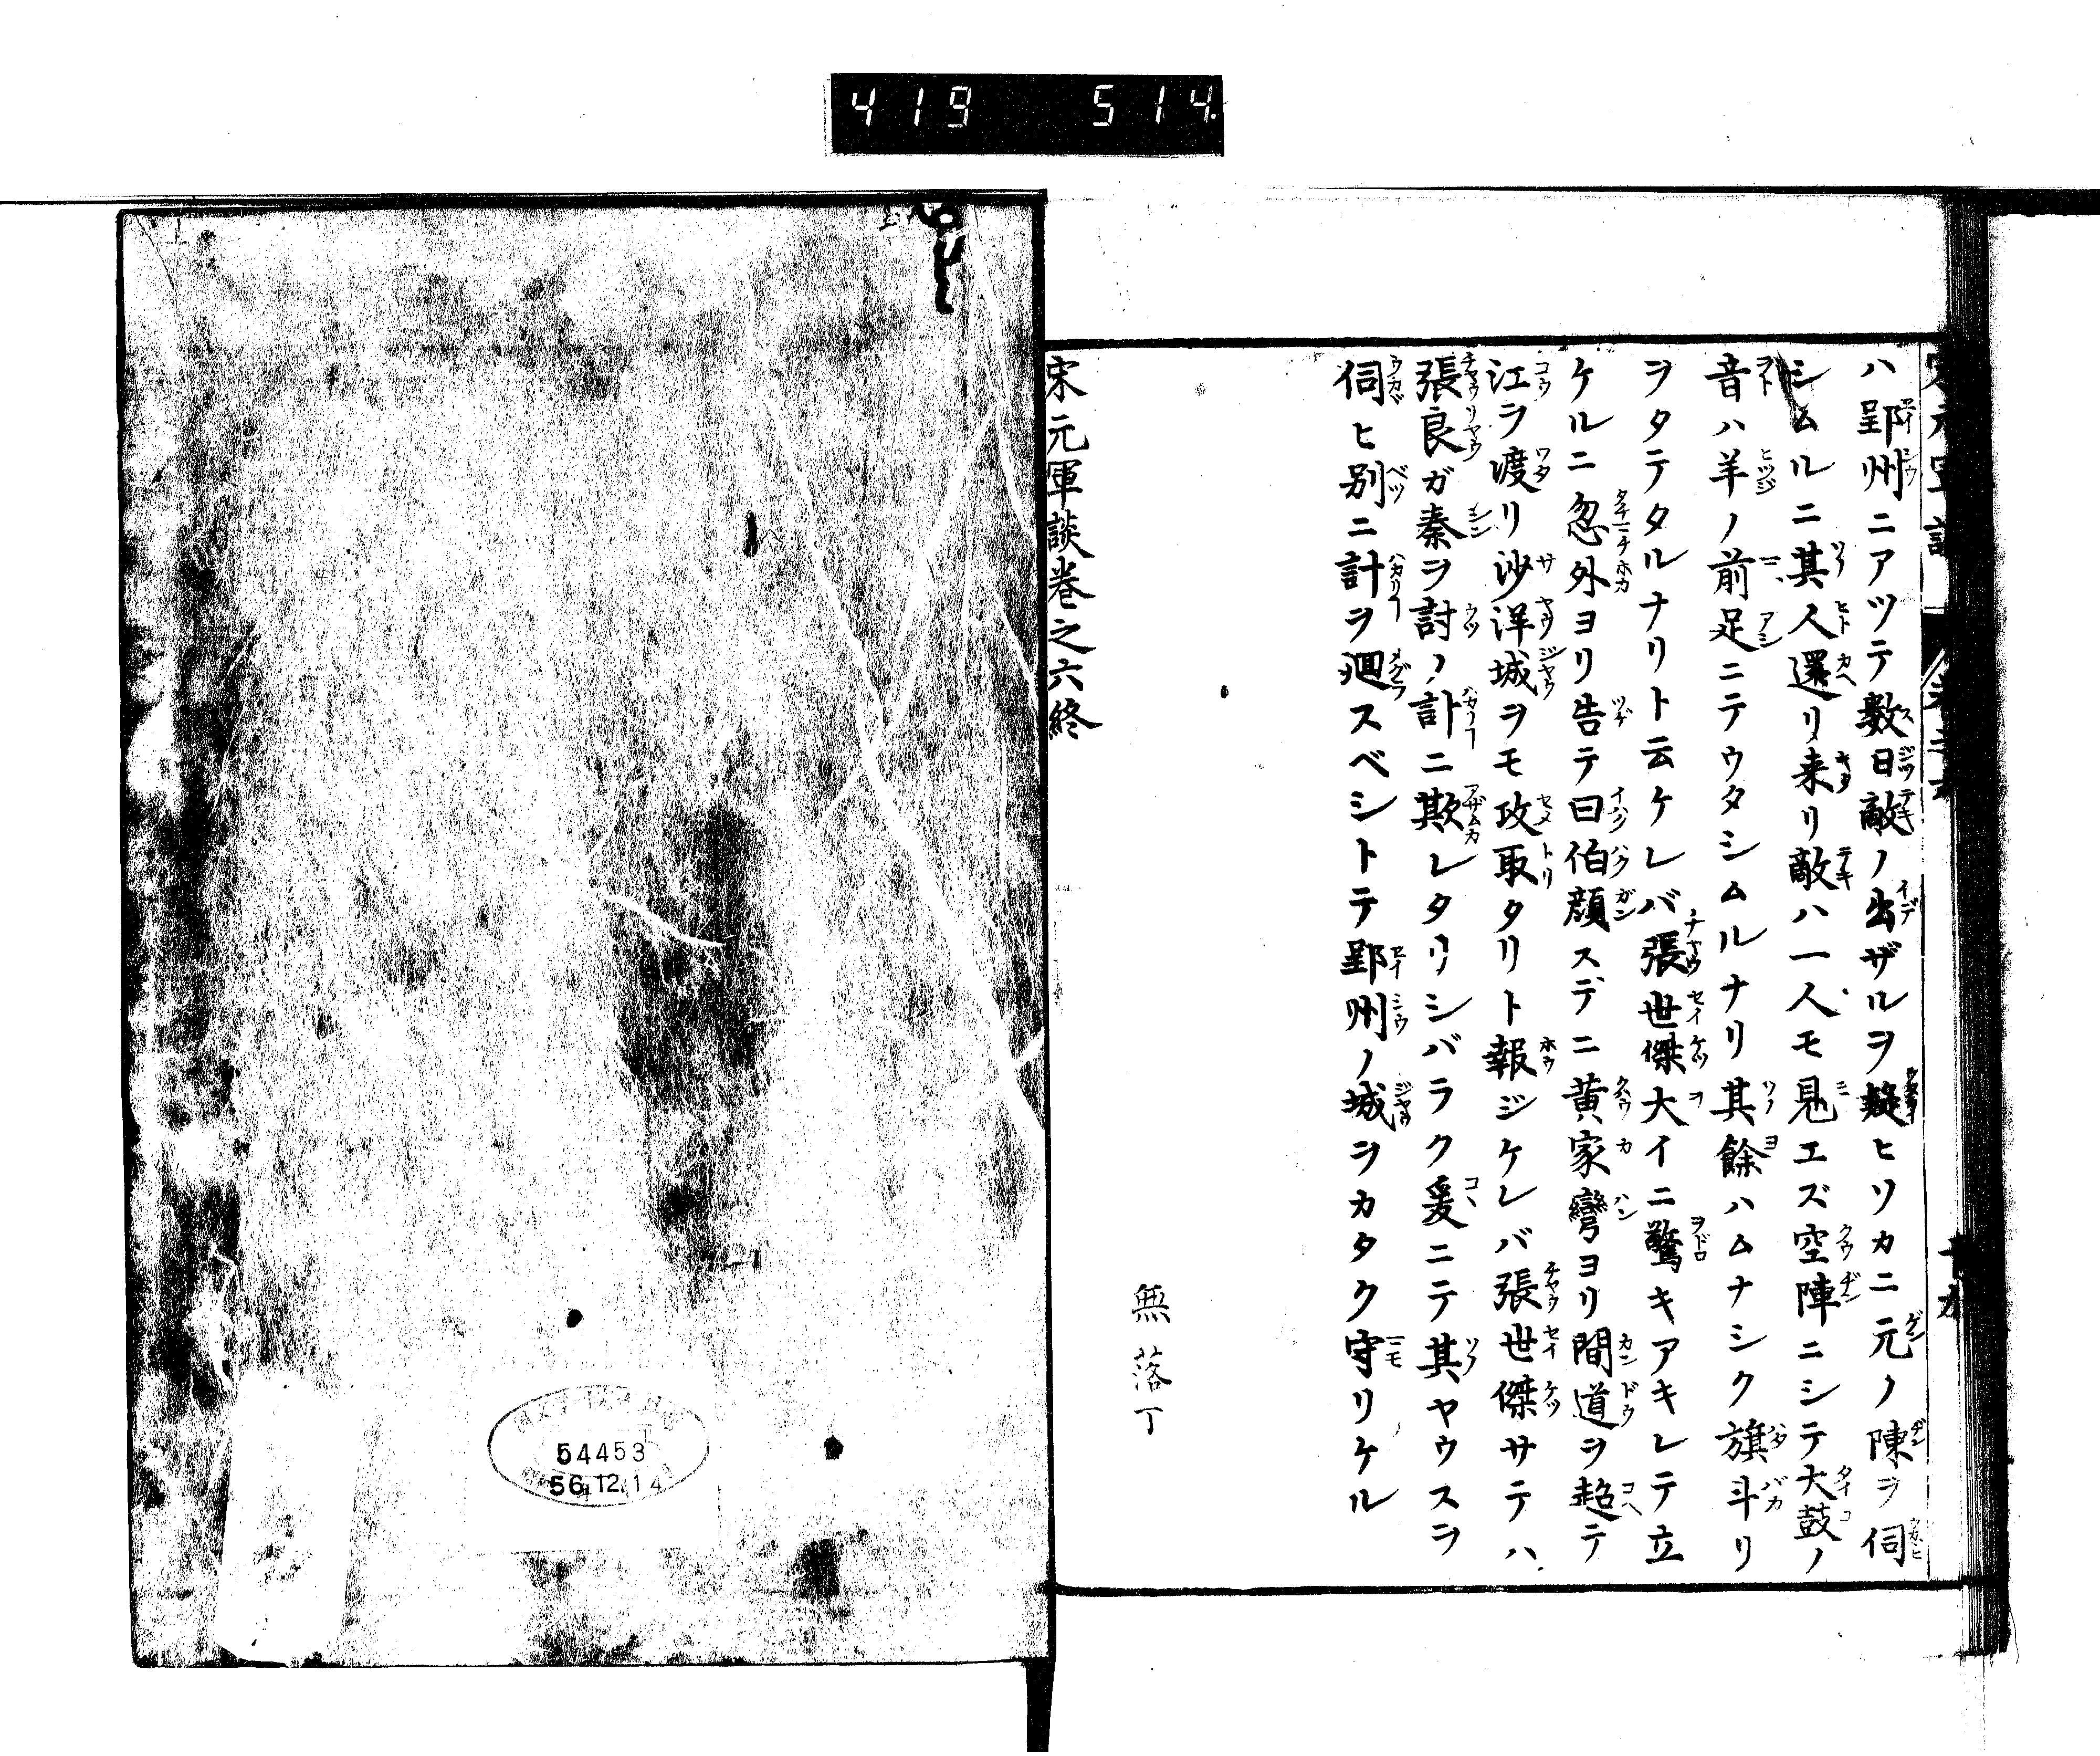 419 514
ハ郢州ニアツテ数日敵ノ出ザルヲ疑ヒソカニ元ノ陳ヲ伺
シムルニ其人還リ来リ敵ハ一人モ見エズ空陣ニシテ大鼓ノ
音ハ羊ノ前足ニテウタシムルナリ其餘ハムナシク旗斗リ
ヲタテタルナリト云ケレバ張世傑大イニ驚キアキレテ立
ケルニ忽外ヨリ告テ曰伯顔スデニ黄家彎ヨリ間道ヲ超テ
江ヲ渡リ沙洋城ヲモ攻取タリト報ジケレバ張世傑サテハ
張良ガ秦ヲ討ノ訃ニ欺レタリシバラク爰ニテ其ヤウスヲ
伺ヒ別ニ計ヲ廻スベシトテ郢州ノ城ヲカタク守リケル
無落丁
宋元軍談巻之六終
54453
56.12.14